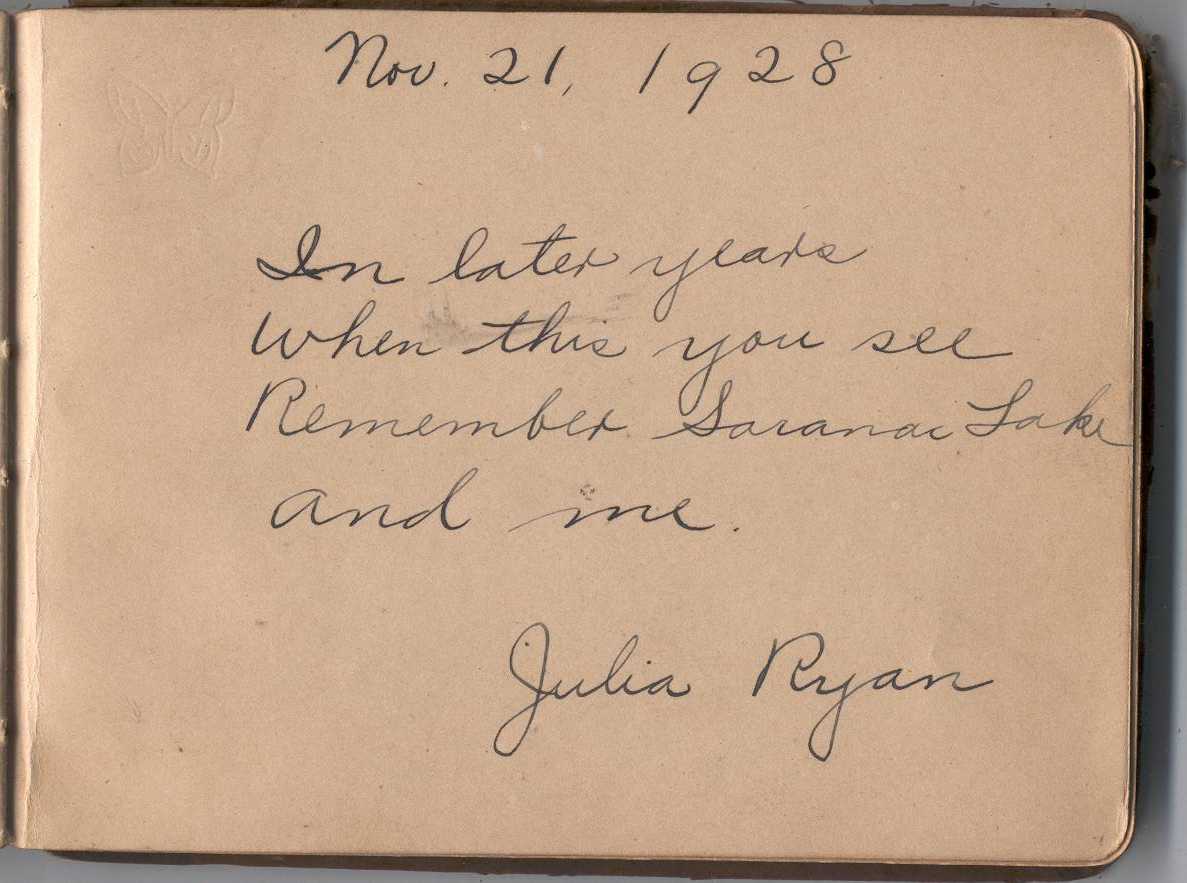 Nov. 21, 1928
In later years
When this you see
Remember Saranac Lake
and me.
Julia Ryan